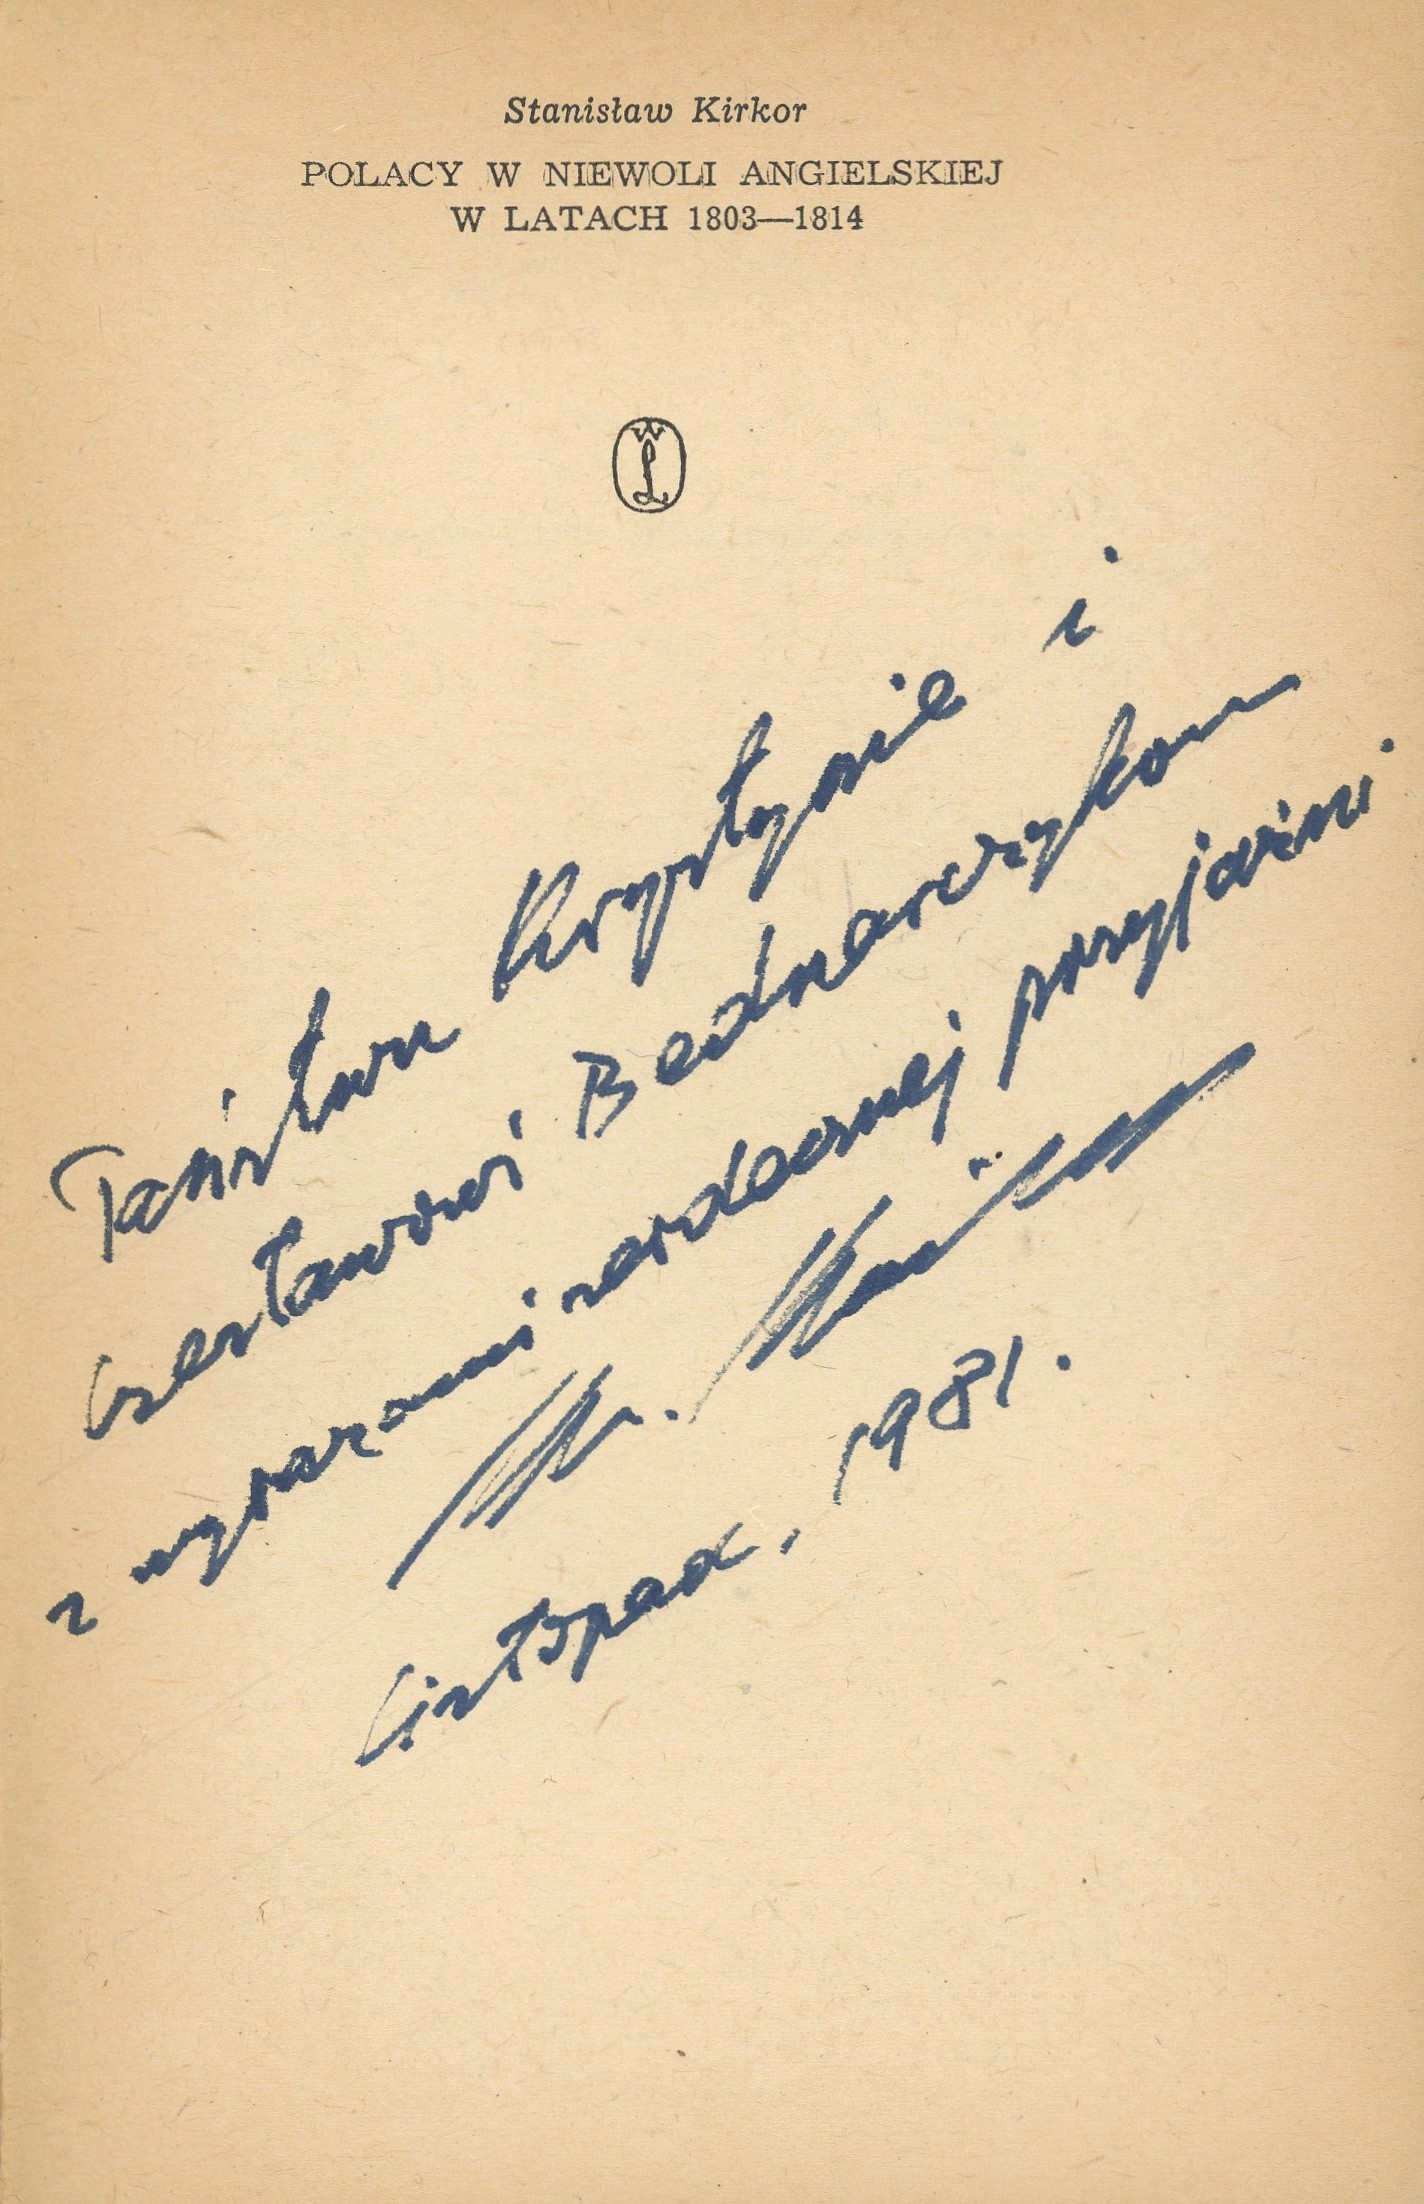 Stanisław Kirkor
POLACY W NIEWOLI ANGIELSKIEJ
W LATACH 1803—1814
WL
Państwu Krystynie i
Czesławowi Bednarczykom
z wyrazami serdecznej przyjaźni
Listopad, 1981.